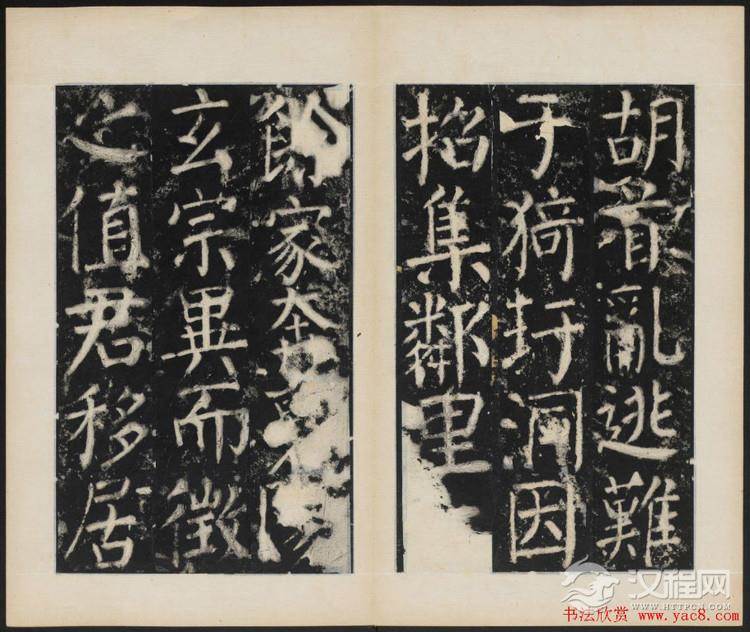 胡首亂逃難
于猗玗洞因
招集鄰里
家奔
玄宗異而徵
之值君移居
汉程网
WWW.HTTPCN.COM
书法欣赏 www.yac8.com